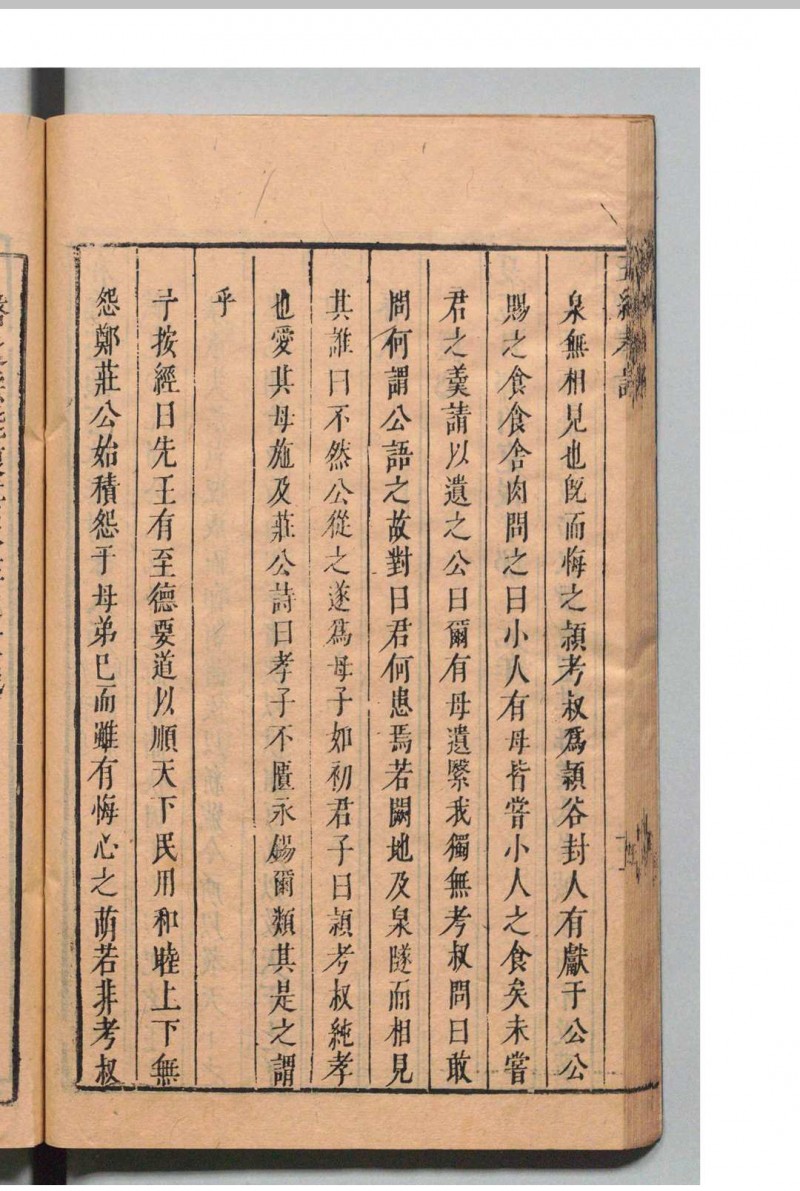 泉無相見也既而悔之潁考叔爲潁谷封人有獻于公公
賜之食食舍肉問之曰小人有母皆嘗小人之食矣未嘗
君之羹請以遺之公曰爾有母遺繄我獨無考叔問曰敢
問何謂公語之故對曰君何患焉若闕地及泉隧而相見
其誰曰不然公從之遂爲母子如初君子曰潁考叔純孝
也愛其母施及莊公詩曰孝子不匱永錫爾類其是之謂
乎
于按經曰先王有至德要道以順天下民用和睦上下無
怨鄭莊公始積怨于母弟巳而雖有悔心之萌若非考叔